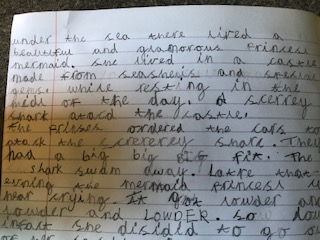 under the sea there lived a
beautiful and glamorous Princess
mermaid. she lived in a castle
made from seashells and
gems. while resting in the
midl of the day. A scerrey
shark atacd the castle.
the prisses ordered the cars to
atack the screrey shark. They
had a big big BIG fit. The
shark swam away. Latre that
evning the mermaid princess
hear crying. It got louder and
louder and LOWDER. So
infact she disided to go
of her